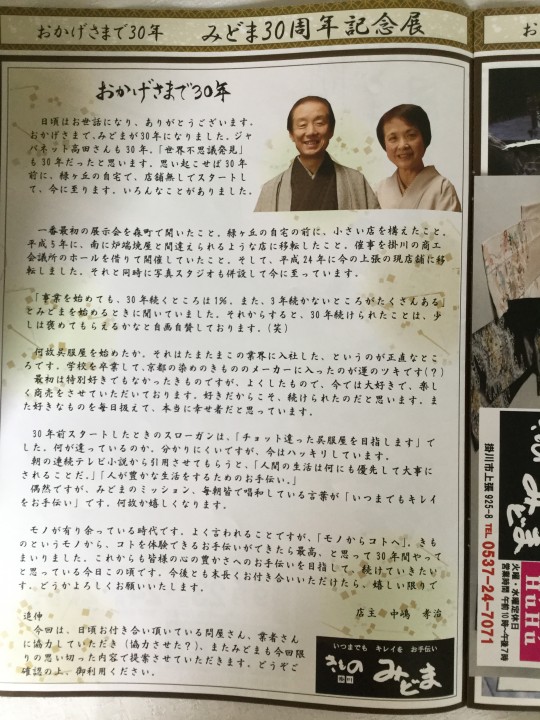 おかげさまで30年 みどま30周年記念展
おかげさまで30年
日頃はお世話になり、ありがとうございます。
おかげさまで、みどまが30年になりました。ジャ
パネット高田さんも30年、「世界不思議発見」
も30年だったと思います。思い起こせば30年
前に、緑ヶ丘の自宅で、店舗無しでスタートし
て、今に至ります。いろんなことがありました。
一番最初の展示会を森町で開いたこと。緑ヶ丘の自宅の前に、小さい店を構えたこと。
平成5年に、南に炉端焼屋と間違えられるような店に移転したこと、催事を掛川の商工
会議所のホールを借りて開催していたこと。そして、平成24年に今の上張の現店舗に移
転しました。それと同時に写真スタジオも併設して今に至っています。
「事業を始めても、30年続くところは1%。また、3年続かないところがたくさんある」
とみどまを始めるときに聞いていました。それからすると、30年続けられたことは、少
しは褒めてもらえるかなと自画自賛しております。(笑)
何故呉服屋を始めたか。それはたまたまこの業界に入社した、というのが正直なとこ
ろです。学校を卒業して、京都の染めのきもののメーカーに入ったのが運のツキです(?)
最初は特別好きでもなかったきものですが、よくしたもので、今では大好きで、楽し
く商売をさせていただいております。好きだからこそ、続けられたのだと思います。ま
た好きなものを毎日扱えて、本当に幸せ者だと思っています。
30年前スタートしたときのスローガンは、「チョット違った呉服屋を目指します」で
した。何が違っているのか。分かりにくいですが、今はハッキリしています。
朝の連続テレビ小説から引用させてもらうと、「人間の生活は何にも優先して大事に
されることだ。」「人が豊かな生活をするためのお手伝い。」
偶然ですが、みどまのミッション、毎朝皆で唱和している言葉が「いつまでもキレイ
をお手伝い」です。何故か嬉しくなります。
モノが有り余っている時代です。よく言われることですが、「モノからコトへ」。きも
のというモノから、コトを体験できるお手伝いができたら最高、と思って30年間やって
まいりました。これからも皆様の心の豊かさへのお手伝いを目指して、続けていきたい
と思っている今日この頃です。今後とも末長くお付き合いいただけたら、嬉しい限りで
す。どうかよろしくお願いいたします。
店主 中嶋 孝治
追伸
今回は、日頃お付き合い頂いている問屋さん、業者さん
に協力していただき(協力させた?)、またみどまも今回限
りの思い切った内容で提案させていただきます。どうぞご
確認の上、御利用ください。
いつまでも キレイを お手伝い
きもの みどま
お
みどま
掛川市上張925-8 TEL 0537-24-7071
HuHu
火曜・水曜定休日
営業時間 午前10時〜午後7時